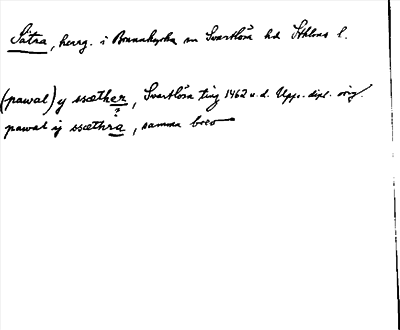 Sätra, herrg. i Brännkyrka sn Svartlösa hd Sthlms l.
(pawal) y sæther, Svartlösa ting 1462 u.d. Upps. dipl. orig.
?
pawal ij sæthra, samma brev